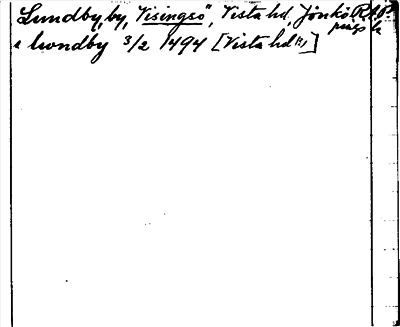 Lundby, by, Visingsö, Vista hd, Jönkö RAP
pings l.
i lwndby 3/2 1494 [Vista hd]